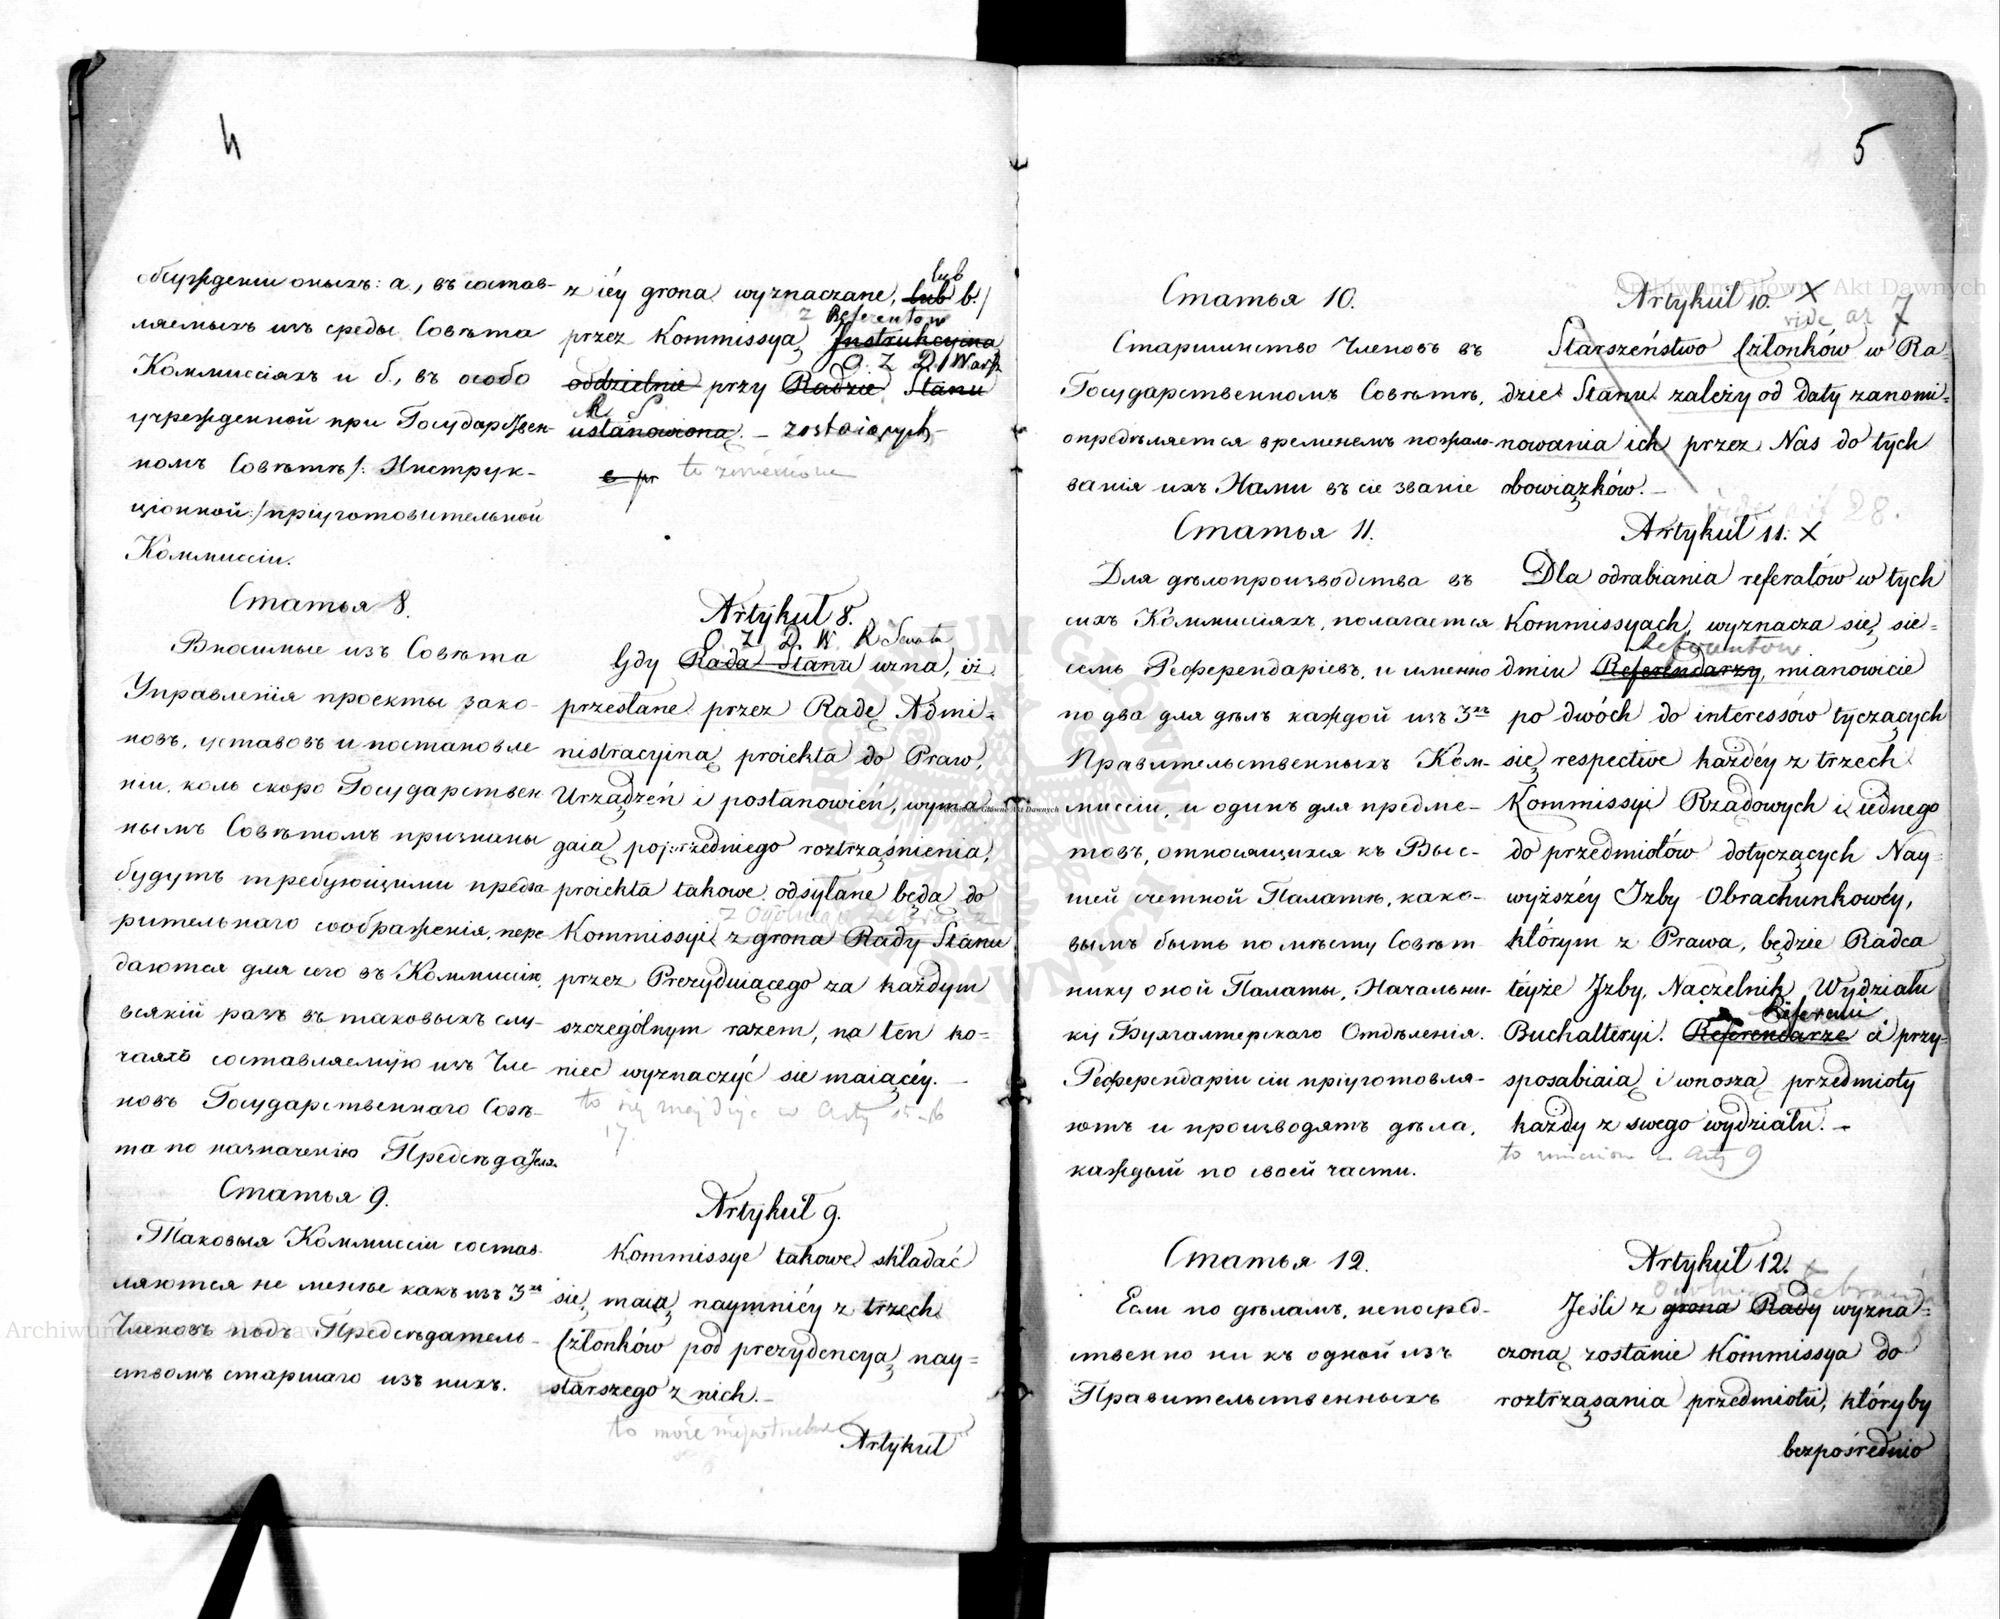 4
обсужденіи оныхъ: а., въ состав-
ляемыхъ изъ среды Совѣта
Коммиссіяхъ и б., въ особо
учрежденной при Государствен-
номъ Совѣтѣ /: Инструк-
ціонной :/ пріуготовительной
Коммиссіи.
Статья 8.
Вносимые изъ Совѣта
Управленія проекты зако-
новъ, уставовъ и постановле
ніи, коль скоро Государствен
нымъ Совѣтомъ признаны
будутъ требующими предва
рительнаго соображенія, пере
даются для сего въ Коммиссію,
всякій разъ въ таковыхъ слу-
чаяхъ составляемую изъ Чле
новъ Государственнаго Совѣ-
та по назначенію Предсѣдателя.
Статья 9.
Таковыя Коммиссіи состав-
ляются не менѣе какъ изъ 3хъ
Членовъ подъ Предсѣдатель-
ствомъ старшаго изъ нихъ.
lub
z iéy grona wyznaczane, lub b./
z Referentów
przez Kommissyą Instrukcyiną
O. Z. D. Warsz
oddzielnie przy Radzie Stanu
R. S.
ustanowioną. – zostaiących
to zmienione
Artykuł 8.
O. Z. D. W. R. Senatu
Gdy Rada Stanu uzna, iż
przesłane przez Radę Admi=
nistracyiną proiekta do Praw,
Urządzeń i postanowień, wyma
gaią poprzedniego roztrząśnienia,
proiekta takowe odsyłane będą do
z Ogólnego Zebrania
Kommissyi z grona Rady Stanu
przez Prezyduiącego za każdym
szczególnym razem, na ten ko=
niec wyznaczyć sie maiącéy. –
to się znajduje w Arty 15 16
17.
Artykuł 9.
Kommissye takowe składać
się maią naymniéy z trzech
Członków pod prezydencyą nay=
starszego z nich. –
to może niepotrzebne
Artykuł
5
Статья 10.
Старшинство Членовъ въ
Государственномъ Совѣтѣ,
опредѣляется временемъ пожало-
ванія ихъ Нами въ сіе званіе
Статья 11.
Для дѣлопроизводства въ
сихъ Коммиссіяхъ, полагается
семь Референдаріевъ, и именно
по два для дѣлъ каждой изъ 3хъ
Правительственныхъ Ком-
миссіи, и одинъ для предме-
товъ, относящихся къ Выс-
шей счетной Палатѣ, како-
вымъ быть по мѣсту Совѣт-
нику оной Палаты, Начальни-
ку Бухгалтерскаго Отдѣленія.
Референдаріи сіи пріуготовля-
ютъ и производятъ дѣла,
каждый по своей части.
Статья 12.
Если по дѣламъ, непосред-
ственно ни къ одной изъ
Правительственныхъ
Artykuł 10. X
vide ar 7
Starszeństwo Członków w Ra=
dzie Stanu zależy od daty zanomi=
nowania ich przez Nas do tych
obowiązków. –
vide art 28.
Artykuł 11. X
Dla odrabiania referatów w tych
Kommissyach, wyznacza się sie=
Referentów
dmiu Referendarzy, mianowicie
po dwóch do interessów tyczących
się respective każdéy z trzech
Kommissyi Rządowych i iednego
do przedmiotów dotyczących Nay=
wyższéy Izby Obrachunkowéy,
którym z Prawa, będzie Radca
téyże Izby, Naczelnik Wydziału
Referenci
Buchalteryi. Referendarze ci przy=
sposabiaią i wnoszą przedmioty
każdy z swego wydziału. –
to w Arty 9
Artykuł 12. X
Ogólnego Zebrania
Jeśli z grona Rady wyzna=
czoną zostanie Kommissya do
roztrząsania przedmiotu, któryby
bezpośrednio
Archiwum Główne Akt Dawnych
Archiwum Główne Akt Dawnych
Archiwum Główne Akt Dawnych
ARCHIWUM GŁÓWNE AKT DAWNYCH